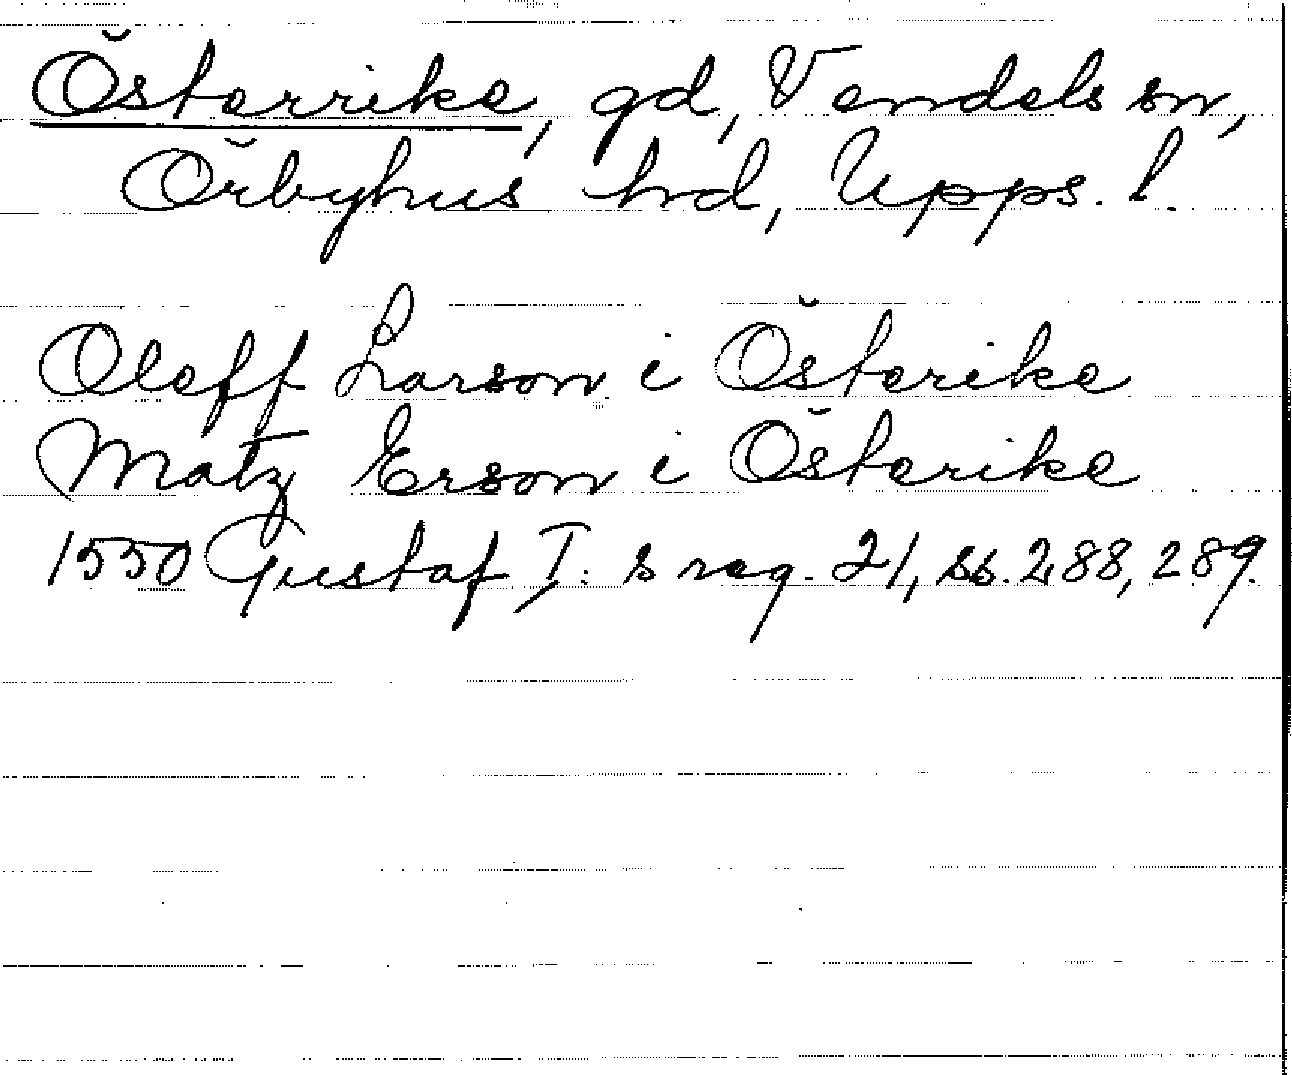 Österrike, gd, Vendels sn,
Örbyhus hrd, Upps. l.
Oleff Larson i Österike
Matz Erson i Österike
1550 Gustaf I:s reg. 21, ss. 288, 289.